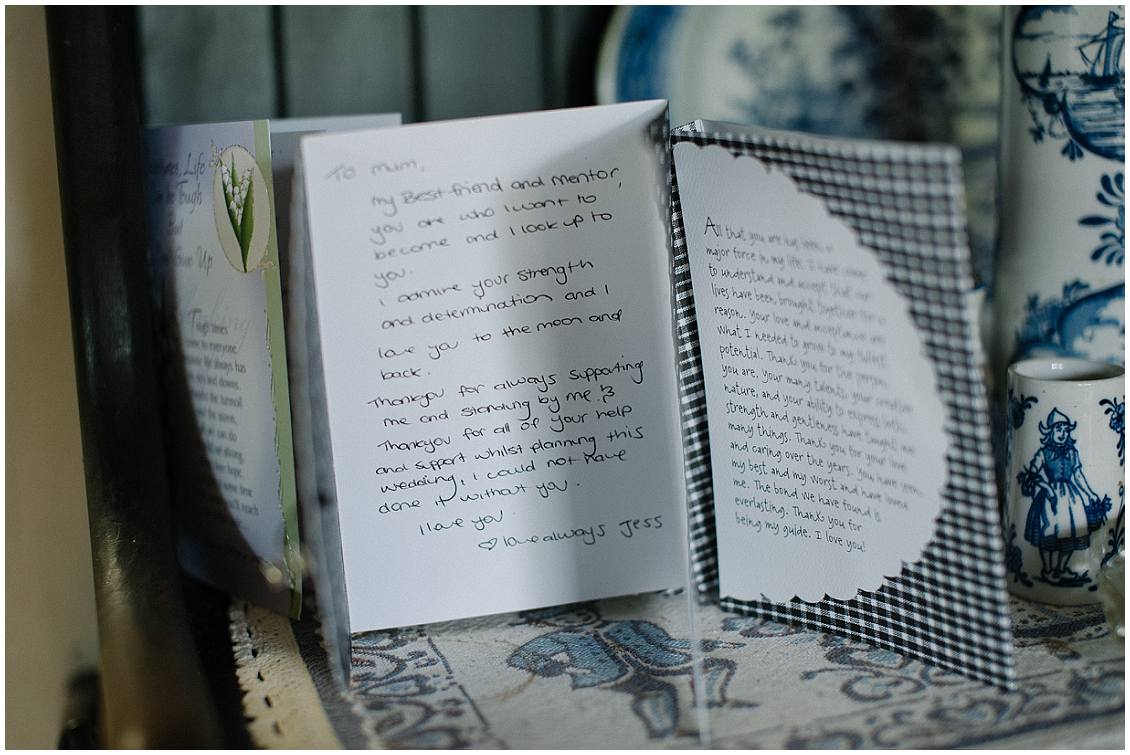 Life
Tough
But
Give Up
Tough times
come to everyone
life always has
and downs.
the turmoil
the storm.
we can do
strong,
hope,
some time
reach
To mum,
my Best-friend and mentor,
you are who I want to
become and I look up to
you.
I admire your strength
and determination and I
love you to the moon and
back.
Thankyou for always supporting
me and standing by me.
Thankyou for all of your help
and support whilst planning this
wedding, I could not have
done it without you.
I love you
love always Jess
All that you are has been a
major force in my life. I have come
to understand and accept that our
lives have been brought together for a
reason. Your love and acceptance are
what I needed to grow to my fullest
potential. Thank you for the person
you are. Your many talents, your creative
nature, and your ability to express both
strength and gentleness have taught me
many things. Thank you for your love
and caring over the years. You have seen
my best and my worst and have loved
me. The bond we have found is
everlasting. Thank you for
being my guide. I love you!